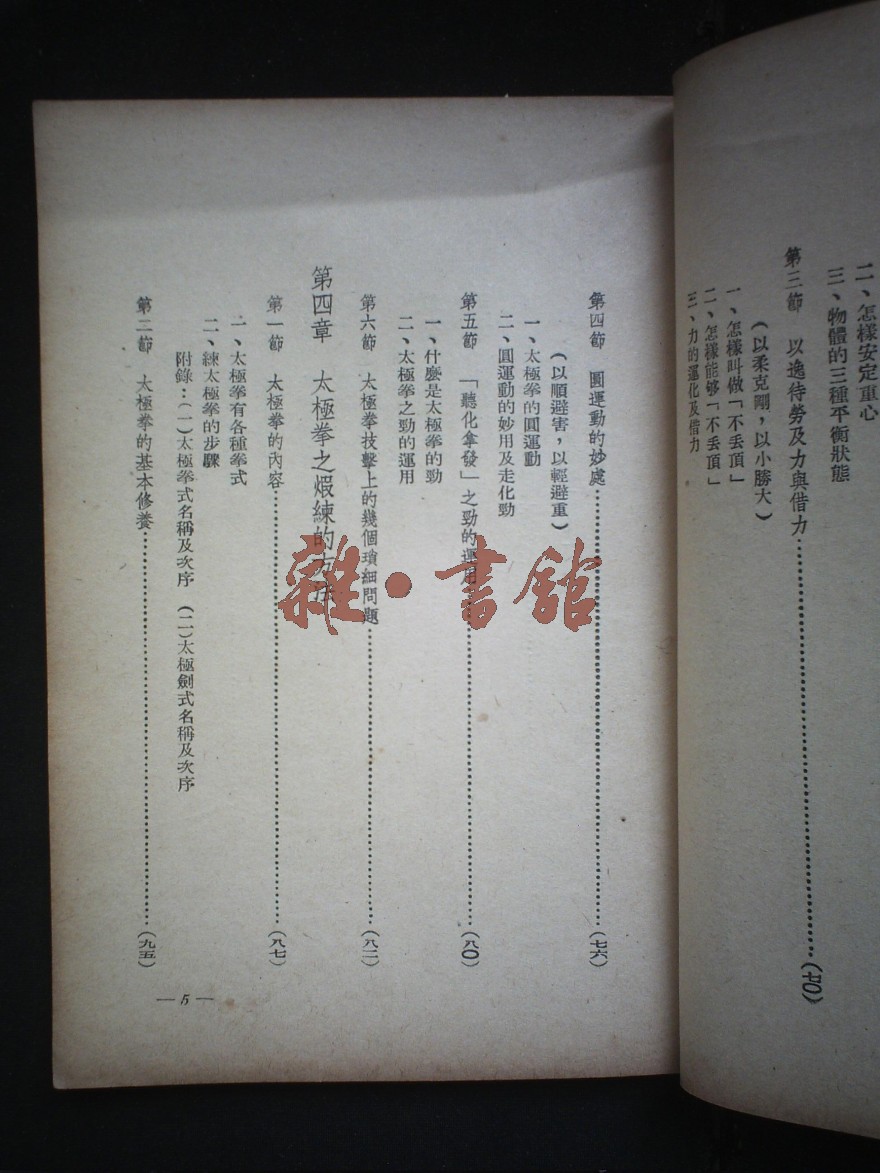 二、怎樣安定重心
三、物體的三種平衡狀態
第三節　以逸待勞及力與借力……(七〇)
(以柔克剛，以小勝大)
一、怎樣叫做「不丟頂」
二、怎樣能够「不丟頂」
三、力的運化及借力
第四節　圓運動的妙處……(七六)
(以順避害，以輕避重)
一、太極拳的圓運動
二、圓運動的妙用及走化勁
第五節　「聽化拿發」之勁的運用……(八〇)
一、什麽是太極拳的勁
二、太極拳之勁的運用
第六節　太極拳技擊上的幾個瑣細問題……(八二)
第四章　太極拳之煆練的方法
第一節　太極拳的內容……(八七)
一、太極拳有各種拳式
二、練太極拳的步驟
附錄：(一)太極拳式名稱及次序　(二)太極劍式名稱及次序
第二節　太極拳的基本修養……(九五)
— 5 —
雜·書館